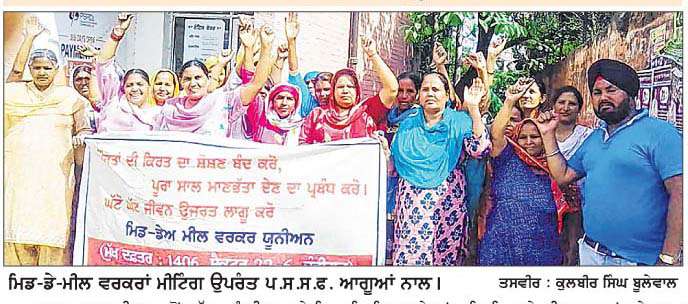 PAYMENT
...ਰਤਾਂ ਦੀ ਕਿਰਤ ਦਾ ਸ਼ੋਸ਼ਣ ਬੰਦ ਕਰੋ,
ਪੂਰਾ ਸਾਲ ਮਾਣਭੱਤਾ ਦੇਣ ਦਾ ਪ੍ਰਬੰਧ ਕਰੋ।
ਘੱਟੋ ਘੱਟ ਜੀਵਨ ਉਜਰਤ ਲਾਗੂ ਕਰੋ
ਮਿਡ-ਡੇਅ ਮੀਲ ਵਰਕਰ ਯੂਨੀਅਨ
(ਮੁੱਖ ਦਫਤਰ : 1406 ਸੈਕਟਰ 22
ਮਿਡ-ਡੇ-ਮੀਲ ਵਰਕਰਾਂ ਮੀਟਿੰਗ ਉਪਰੰਤ ਪ.ਸ.ਸ.ਫ. ਆਗੂਆਂ ਨਾਲ।
ਤਸਵੀਰ : ਕੁਲਬੀਰ ਸਿੰਘ ਬੂਲੇਵਾਲ